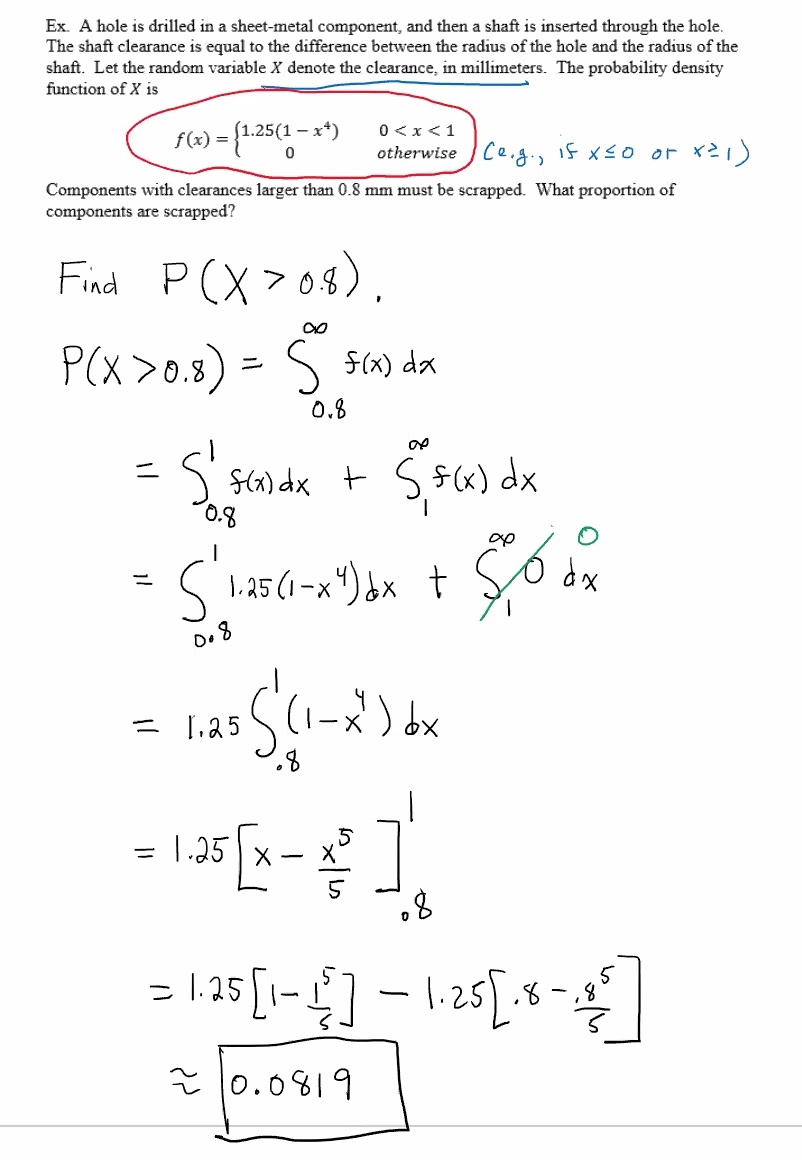 Ex. A hole is drilled in a sheet-metal component, and then a shaft is inserted through the hole.
The shaft clearance is equal to the difference between the radius of the hole and the radius of the
shaft. Let the random variable X denote the clearance, in millimeters. The probability density
function of X is
f(x) = {1.25(1 − x⁴) 0 < x < 1
0 otherwise (e.g., if x ≤ 0 or x ≥ 1)
Components with clearances larger than 0.8 mm must be scrapped. What proportion of
components are scrapped?
Find P(X > 0.8).
P(X > 0.8) = ∫_{0.8}^{∞} f(x) dx
= ∫_{0.8}^{1} f(x) dx + ∫_{1}^{∞} f(x) dx
= ∫_{0.8}^{1} 1.25(1−x⁴) dx + ∫_{1}^{∞} 0 dx 0
= 1.25 ∫_{.8}^{1} (1−x⁴) dx
= 1.25 [x − x⁵/5]_{.8}^{1}
= 1.25 [1 − 1⁵/5] − 1.25 [.8 − .8⁵/5]
≈ 0.0819